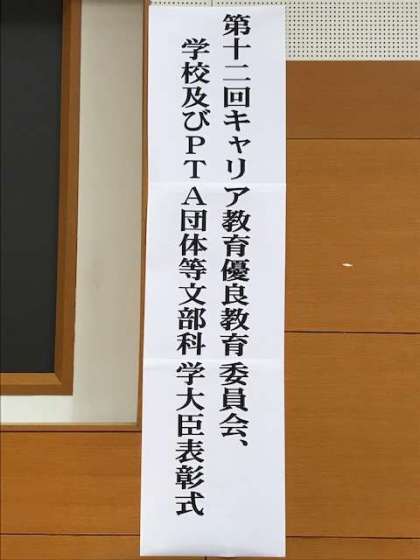 第十二回キャリア教育優良教育委員会、
学校及びPTA団体等文部科学大臣表彰式